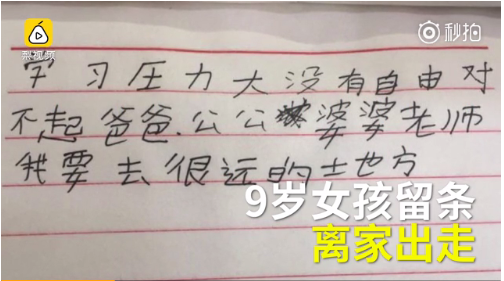 梨视频
秒拍
学习压力大没有自由对
不起爸爸.公公婆婆老师
我要去很远的地方
9岁女孩留条
离家出走